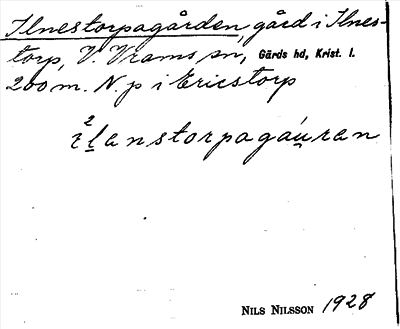 Ilnestorpagården, gård i Ilnes-
torp, V. Vrams sn, Gärds hd, Krist. l.
200 m. N. p i Ericstorp
²il̲anstorpagáu̲ran
NILS NILSSON 1928